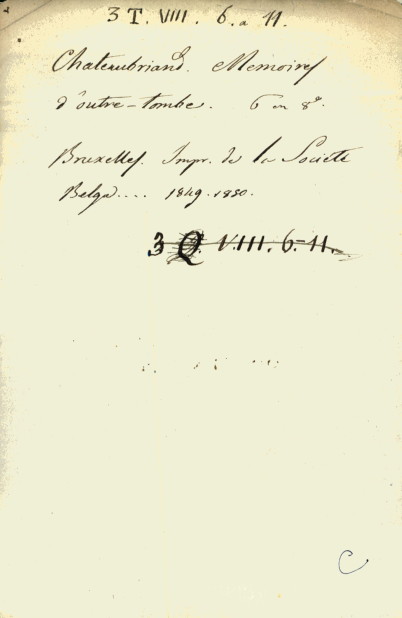 3 T. VIII. 6. a 11.
Chateaubriand. Memoires
d'outre-tombe. 6 in 8º.
Bruxelles. Impr. de la Societé
Belge.... 1849.1850.
3 Q. VIII. 6-11.
C